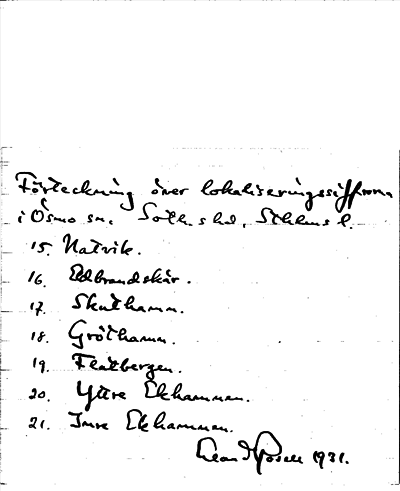 Förteckning över lokaliseringssiffrorna
i Ösmo sn. Soth. shd, Sthlms l.
15. Natvik.
16. Eldbrandskär.
17. Skuthamn.
18. Gröthamn.
19. Flatbergen.
20. Yttre Ekhammen.
21. Inre Ekhammen.
1931.